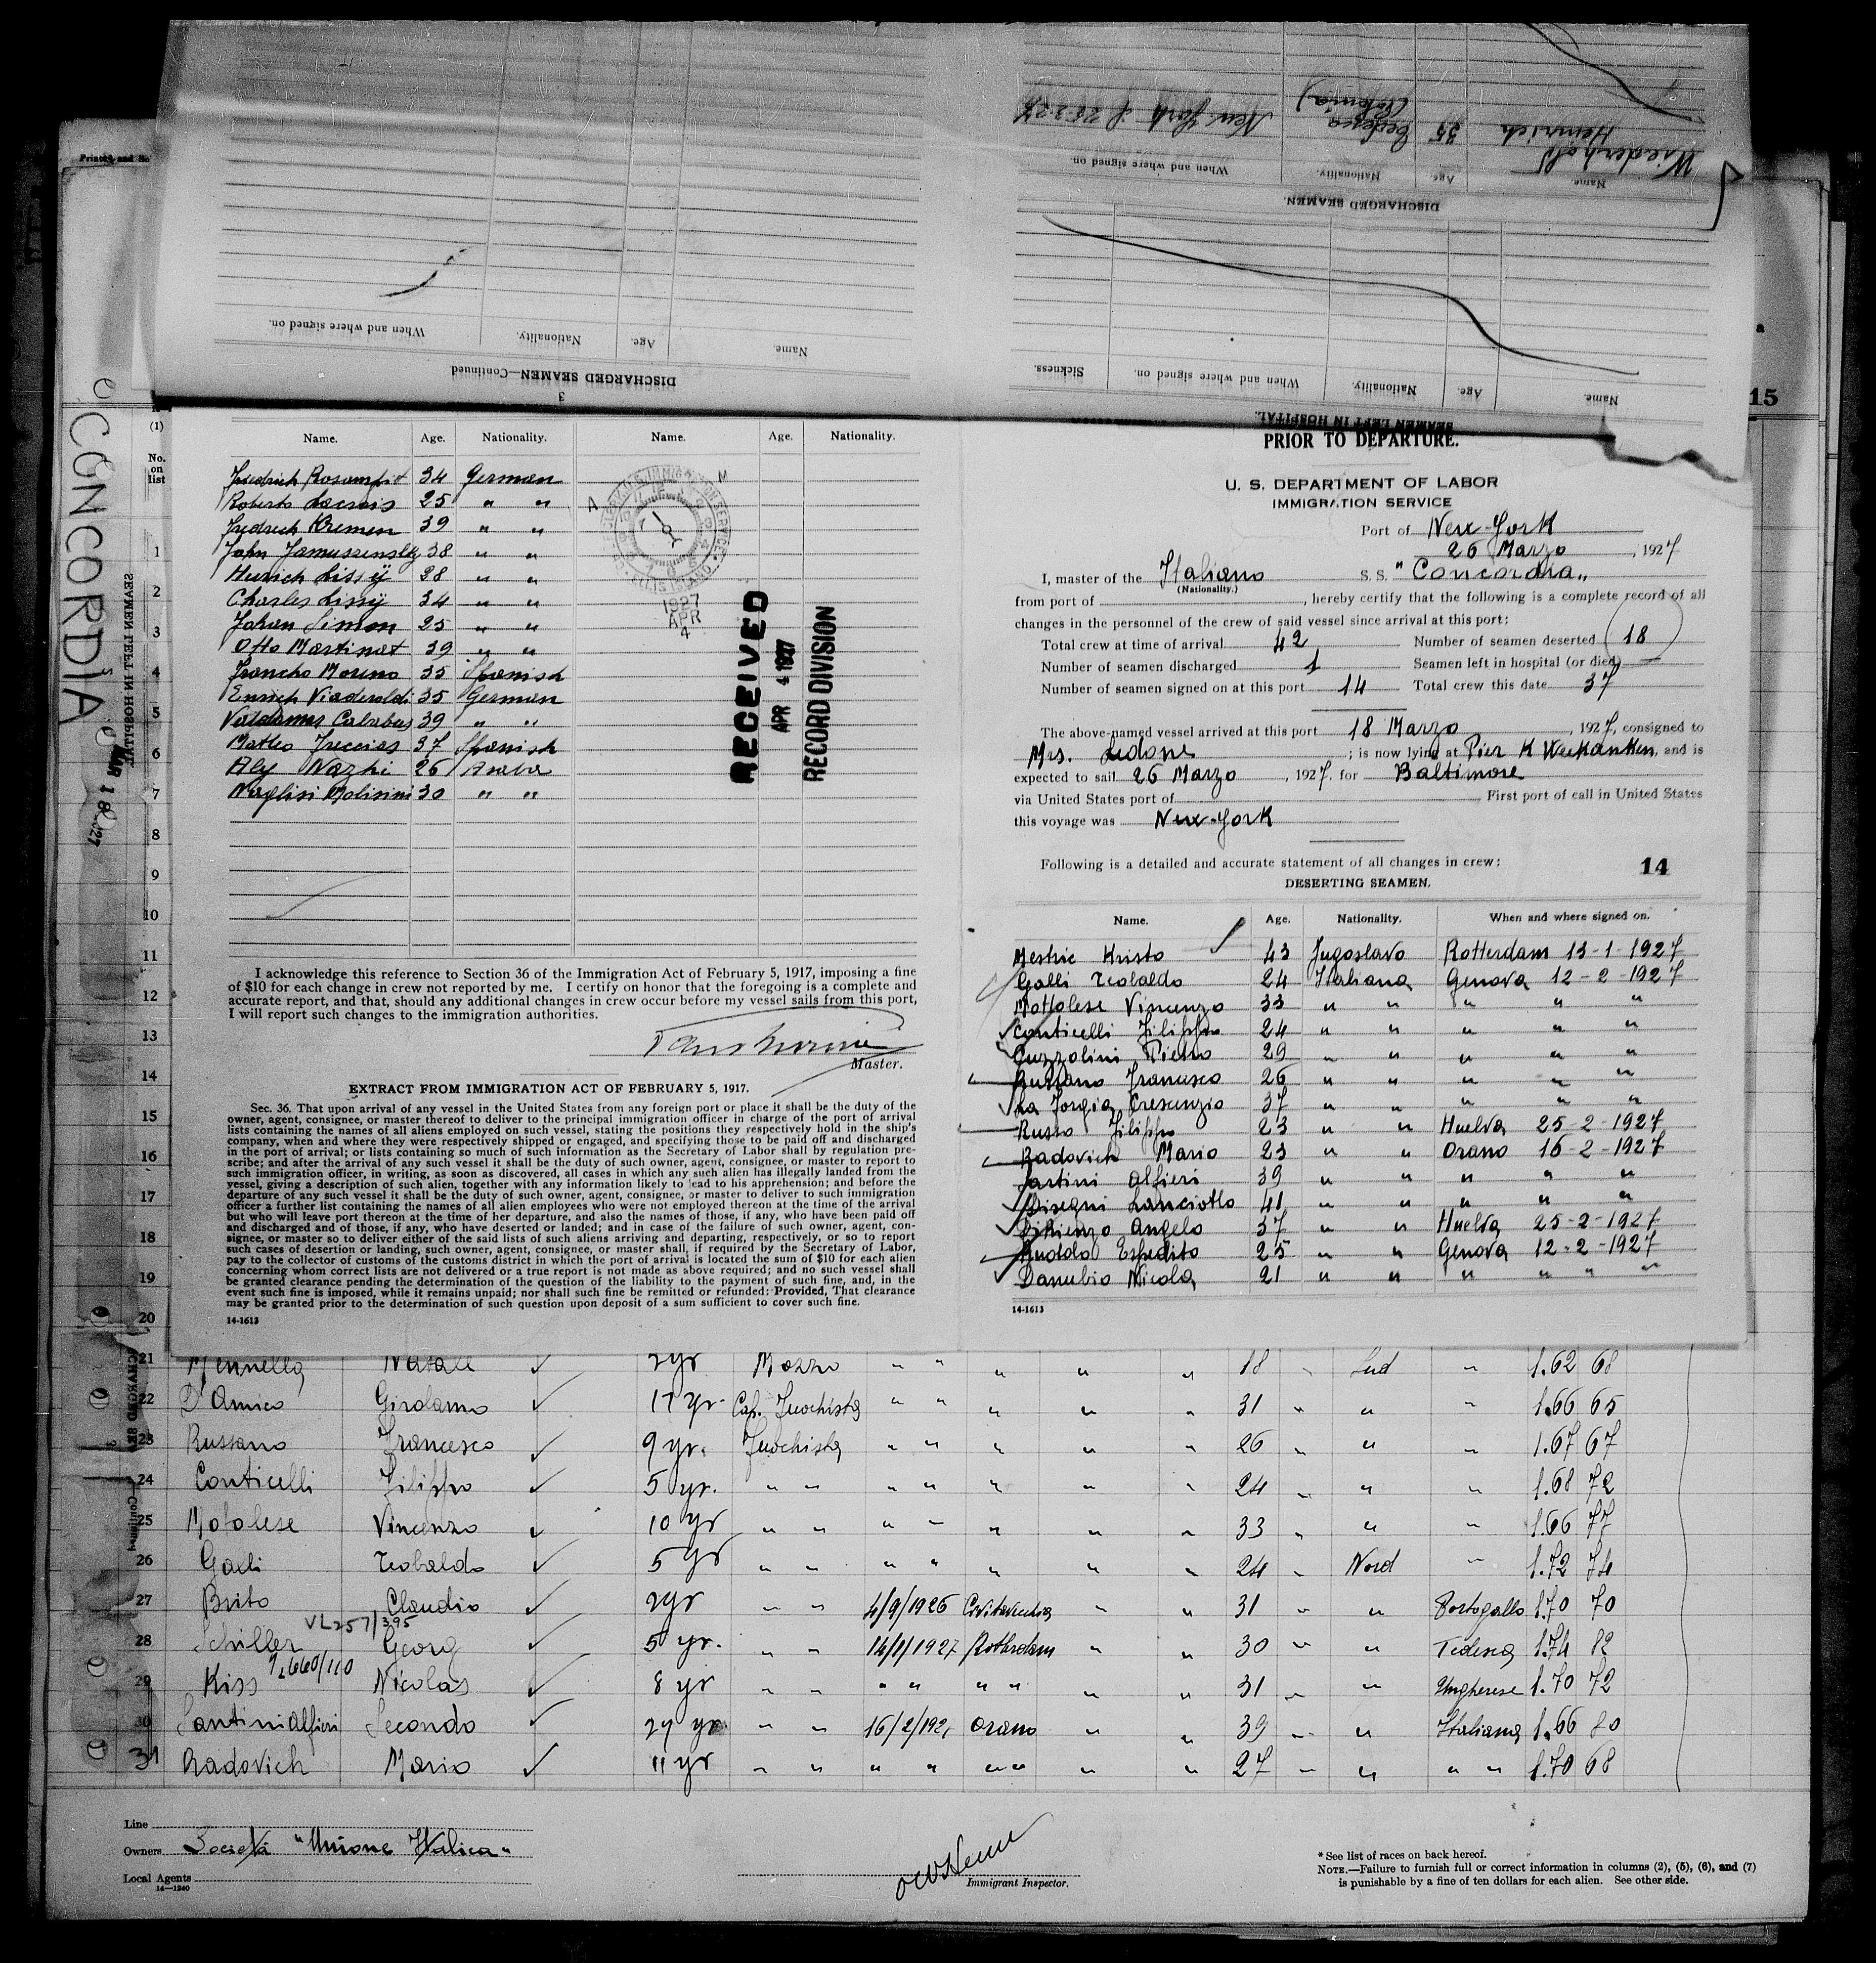 Printed and So
Wiederhold Heinrich 35 Tedesca New York
Name. Age. Nationality. When and where signed on.
DISCHARGED SEAMEN.
Name. Age. Nationality. When and where signed on.
DISCHARGED SEAMEN—Continued
3
Name. Age. Nationality. When and where signed on. Sickness.
SEAMEN LEFT IN HOSPITAL.
15
CONCORDIA
SEAMEN LEFT IN HOSPITAL
MAR 18 1927
(1)
No. on list
1
2
3
4
5
6
7
8
9
10
11
12
13
14
15
16
17
18
19
20
Name. Age. Nationality. Name. Age. Nationality.
Fredrich 34 German
Roberto 25 " "
Fredrich Kremen 39 " "
John 38 " "
28 " "
Charles Lissÿ 34 " "
Johan Simon 25 " "
Otto Martinat 39 " "
Francho Moreno 35 Spanish
Enrich 35 German
39 " "
Matteo 37 Spanish
Aly Nazhi 26 Araba
30 " "
1927
APR
4
RECEIVED
APR 4 1927
RECORD DIVISION
I acknowledge this reference to Section 36 of the Immigration Act of February 5, 1917, imposing a fine
of $10 for each change in crew not reported by me. I certify on honor that the foregoing is a complete and
accurate report, and that, should any additional changes in crew occur before my vessel sails from this port,
I will report such changes to the immigration authorities.
Master.
EXTRACT FROM IMMIGRATION ACT OF FEBRUARY 5, 1917.
Sec. 36. That upon arrival of any vessel in the United States from any foreign port or place it shall be the duty of the
owner, agent, consignee, or master thereof to deliver to the principal immigration officer in charge of the port of arrival
lists containing the names of all aliens employed on such vessel, stating the positions they respectively hold in the ship's
company, when and where they were respectively shipped or engaged, and specifying those to be paid off and discharged
in the port of arrival; or lists containing so much of such information as the Secretary of Labor shall by regulation pre-
scribe; and after the arrival of any such vessel it shall be the duty of such owner, agent, consignee, or master to report to
such immigration officer, in writing, as soon as discovered, all cases in which any such alien has illegally landed from the
vessel, giving a description of such alien, together with any information likely to lead to his apprehension; and before the
departure of any such vessel it shall be the duty of such owner, agent, consignee, or master to deliver to such immigration
officer a further list containing the names of all alien employees who were not employed thereon at the time of the arrival
but who will leave port thereon at the time of her departure, and also the names of those, if any, who have been paid off
and discharged and of those, if any, who have deserted or landed; and in case of the failure of such owner, agent, con-
signee, or master so to deliver either of the said lists of such aliens arriving and departing, respectively, or so to report
such cases of desertion or landing, such owner, agent, consignee, or master shall, if required by the Secretary of Labor,
pay to the collector of customs of the customs district in which the port of arrival is located the sum of $10 for each alien
concerning whom correct lists are not delivered or a true report is not made as above required; and no such vessel shall
be granted clearance pending the determination of the question of the liability to the payment of such fine, and, in the
event such fine is imposed, while it remains unpaid; nor shall such fine be remitted or refunded: Provided, That clearance
may be granted prior to the determination of such question upon deposit of a sum sufficient to cover such fine.
14-1613
PRIOR TO DEPARTURE.
U. S. DEPARTMENT OF LABOR
IMMIGRATION SERVICE
Port of New-York
26 Marzo, 1927
I, master of the Italiano S. S. "Concordia"
(Nationality.)
from port of , hereby certify that the following is a complete record of all
changes in the personnel of the crew of said vessel since arrival at this port:
Total crew at time of arrival 42 Number of seamen deserted 18
Number of seamen discharged 1 Seamen left in hospital (or died)
Number of seamen signed on at this port 14 Total crew this date 37
The above-named vessel arrived at this port 18 Marzo, 1927, consigned to
Mrs. Ledone; is now lying at Pier K Weekanken, and is
expected to sail 26 Marzo, 1927, for Baltimore
via United States port of First port of call in United States
this voyage was New-York
Following is a detailed and accurate statement of all changes in crew: 14
DESERTING SEAMEN.
Name. Age. Nationality. When and where signed on.
Mestric Kristo 43 Jugoslavo Rotterdam 13-1-1927
Galli Teobaldo 24 Italiana Genova 12-2-1927
Mottolese Vincenzo 33 " " " " "
Conticelli Filippo 24 " " " " "
Guzzolini Pietro 29 " " " " "
Russano Francesco 26 " " " " "
La Forgia Cresenzio 37 " " " " "
Russo Filippo 23 " " Huelva 25-2-1927
Radovich Mario 23 " " Orano 16-2-1927
Santini Alfieri 39 " " " " "
Disegni Lanciotto 41 " " " " "
Dirienzo Angelo 37 " " Huelva 25-2-1927
Espedito 25 " " Genova 12-2-1927
Danubio Nicola 21 " " " " "
14-1613
21 Mennella Natale 2yr Mozzo " " " " " 18 " Sud " 1.62 68
22 D'Amico Girolamo 17 yr. Cap. Fuochista " " " " " 31 " " " 1.66 65
23 Russano Francesco 9 yr. Fuochista " " " " " 26 " " " 1.67 67
24 Conticelli Filippo 5 yr. " " " " " " " 24 " " " 1.68 72
25 Motolese Vincenzo 10 yr " " " " " " " 33 " " " 1.66 77
26 Galli Teobaldo 5 yr " " " " " " " 24 " Nord " 1.72 74
27 Brito Claudio 2yr " " 4/9/1926 Civitavecchia " " 31 " " Portogallo 1.70 70
VL257/395
28 Schiller Georg 5 yr. " " 14/1/1927 Rotterdam " " 30 " " Tedesca 1.74 82
29 Kiss Nicolas 8 yr " " " " " " " " 31 " " Ungherese 1.70 72
30 Santini Alfieri Secondo 27 yr " " 16/2/192 Orano " " 39 " " Italiana 1.66 80
31 Radovich Mario 11 yr " " " " " " " " 27 " " " " 1.70 68
Line
Owners Società "Unione Italica"
Local Agents
14—1240
Immigrant Inspector.
* See list of races on back hereof.
NOTE.—Failure to furnish full or correct information in columns (2), (5), (6), and (7)
is punishable by a fine of ten dollars for each alien. See other side.